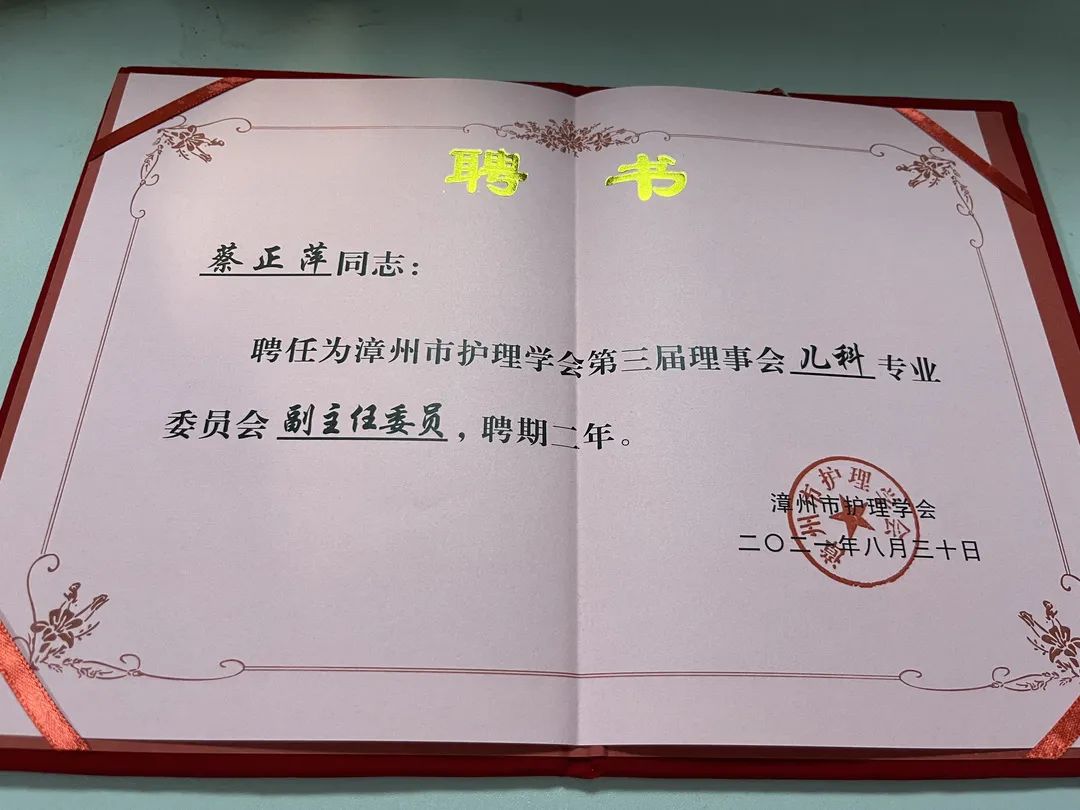 聘 书
蔡正萍同志：
聘任为漳州市护理学会第三届理事会儿科专业
委员会副主任委员，聘期二年。
漳州市护理学会
漳州市护理学会
二〇二一年八月三十日